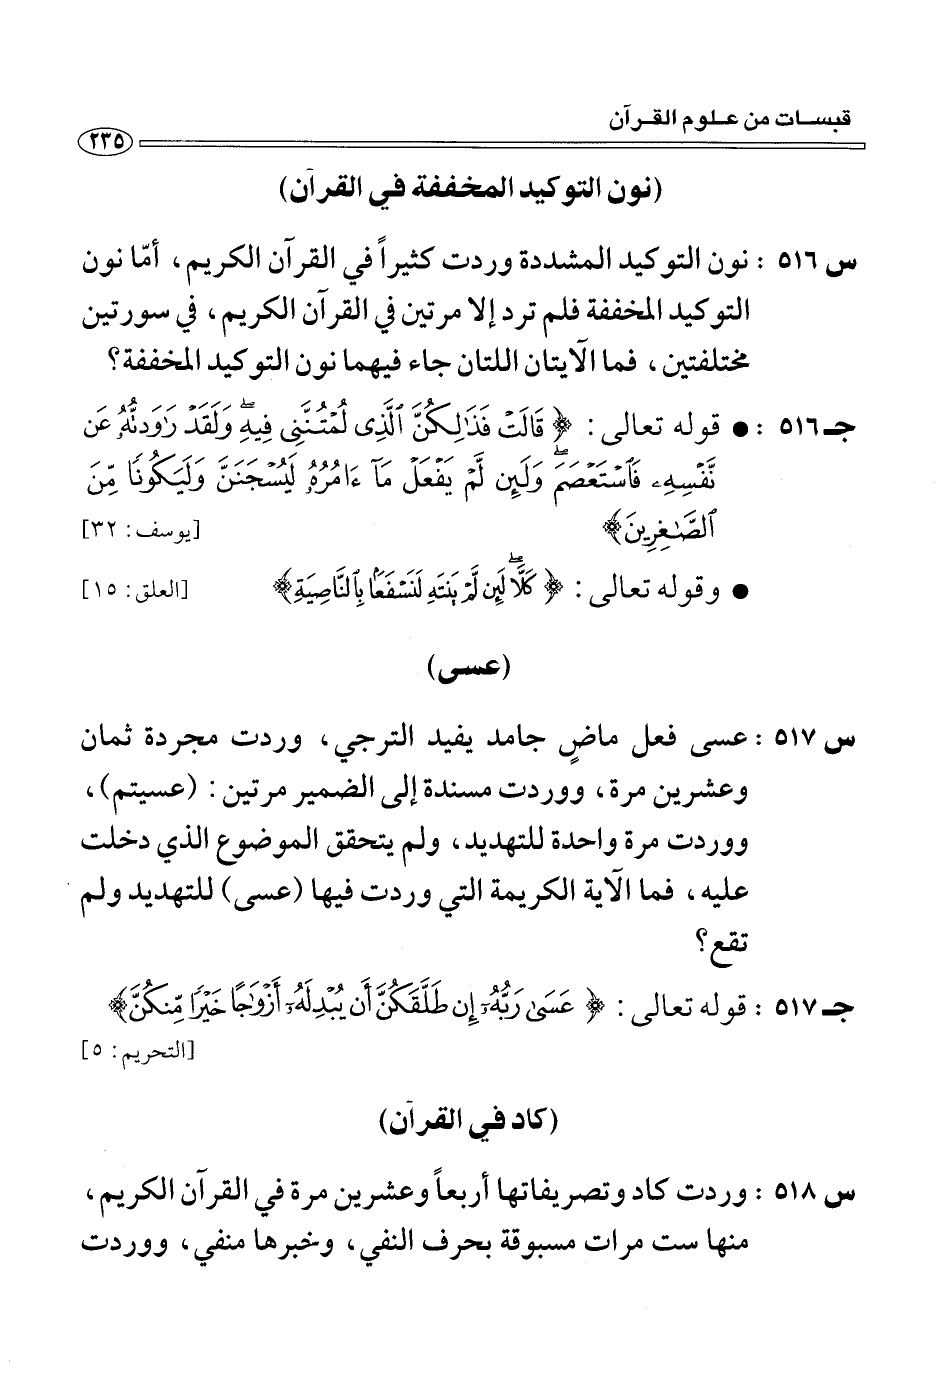 قبسات من علوم القرآن
٢٣٥
(نون التوكيد المخففة في القرآن)
س ٥١٦ : نون التوكيد المشددة وردت كثيراً في القرآن الكريم، أمّا نون
التوكيد المخففة فلم ترد إلا مرتين في القرآن الكريم، في سورتين
مختلفتين، فما الآيتان اللتان جاء فيهما نون التوكيد المخففة؟
جـ ٥١٦ : ● قوله تعالى : ﴿ قَالَتْ فَذَٰلِكُنَّ ٱلَّذِى لُمْتُنَّنِى فِيهِ ۖ وَلَقَدْ رَٰوَدتُّهُۥ عَن
نَّفْسِهِۦ فَٱسْتَعْصَمَ ۖ وَلَئِن لَّمْ يَفْعَلْ مَآ ءَامُرُهُۥ لَيُسْجَنَنَّ وَلَيَكُونًا مِّنَ
ٱلصَّٰغِرِينَ﴾ [يوسف : ٣٢]
● وقوله تعالى : ﴿ كَلَّا لَئِن لَّمْ يَنتَهِ لَنَسْفَعًۢا بِٱلنَّاصِيَةِ﴾ [العلق : ١٥]
(عسى)
س ٥١٧ : عسى فعل ماضٍ جامد يفيد الترجي، وردت مجردة ثمان
وعشرين مرة، ووردت مسندة إلى الضمير مرتين : (عسيتم)،
ووردت مرة واحدة للتهديد، ولم يتحقق الموضوع الذي دخلت
عليه، فما الآية الكريمة التي وردت فيها (عسى) للتهديد ولم
تقع؟
جـ ٥١٧ : قوله تعالى : ﴿ عَسَىٰ رَبُّهُۥٓ إِن طَلَّقَكُنَّ أَن يُبْدِلَهُۥٓ أَزْوَٰجًا خَيْرًا مِّنكُنَّ﴾
[التحريم : ٥]
(كاد في القرآن)
س ٥١٨ : وردت كاد وتصريفاتها أربعاً وعشرين مرة في القرآن الكريم،
منها ست مرات مسبوقة بحرف النفي، وخبرها منفي، ووردت